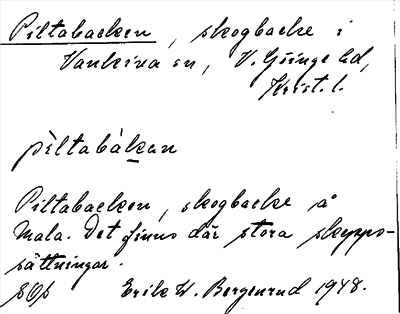 Piltabacken, skogbacke i
Vankiva sn, V. Göinge hd,
Krist. l.
pìltabàkan
Piltabacken, skogbacke å
Mala. Det finns där stora skepps-
sättningar.
Erik W. Bergenrud 1948.